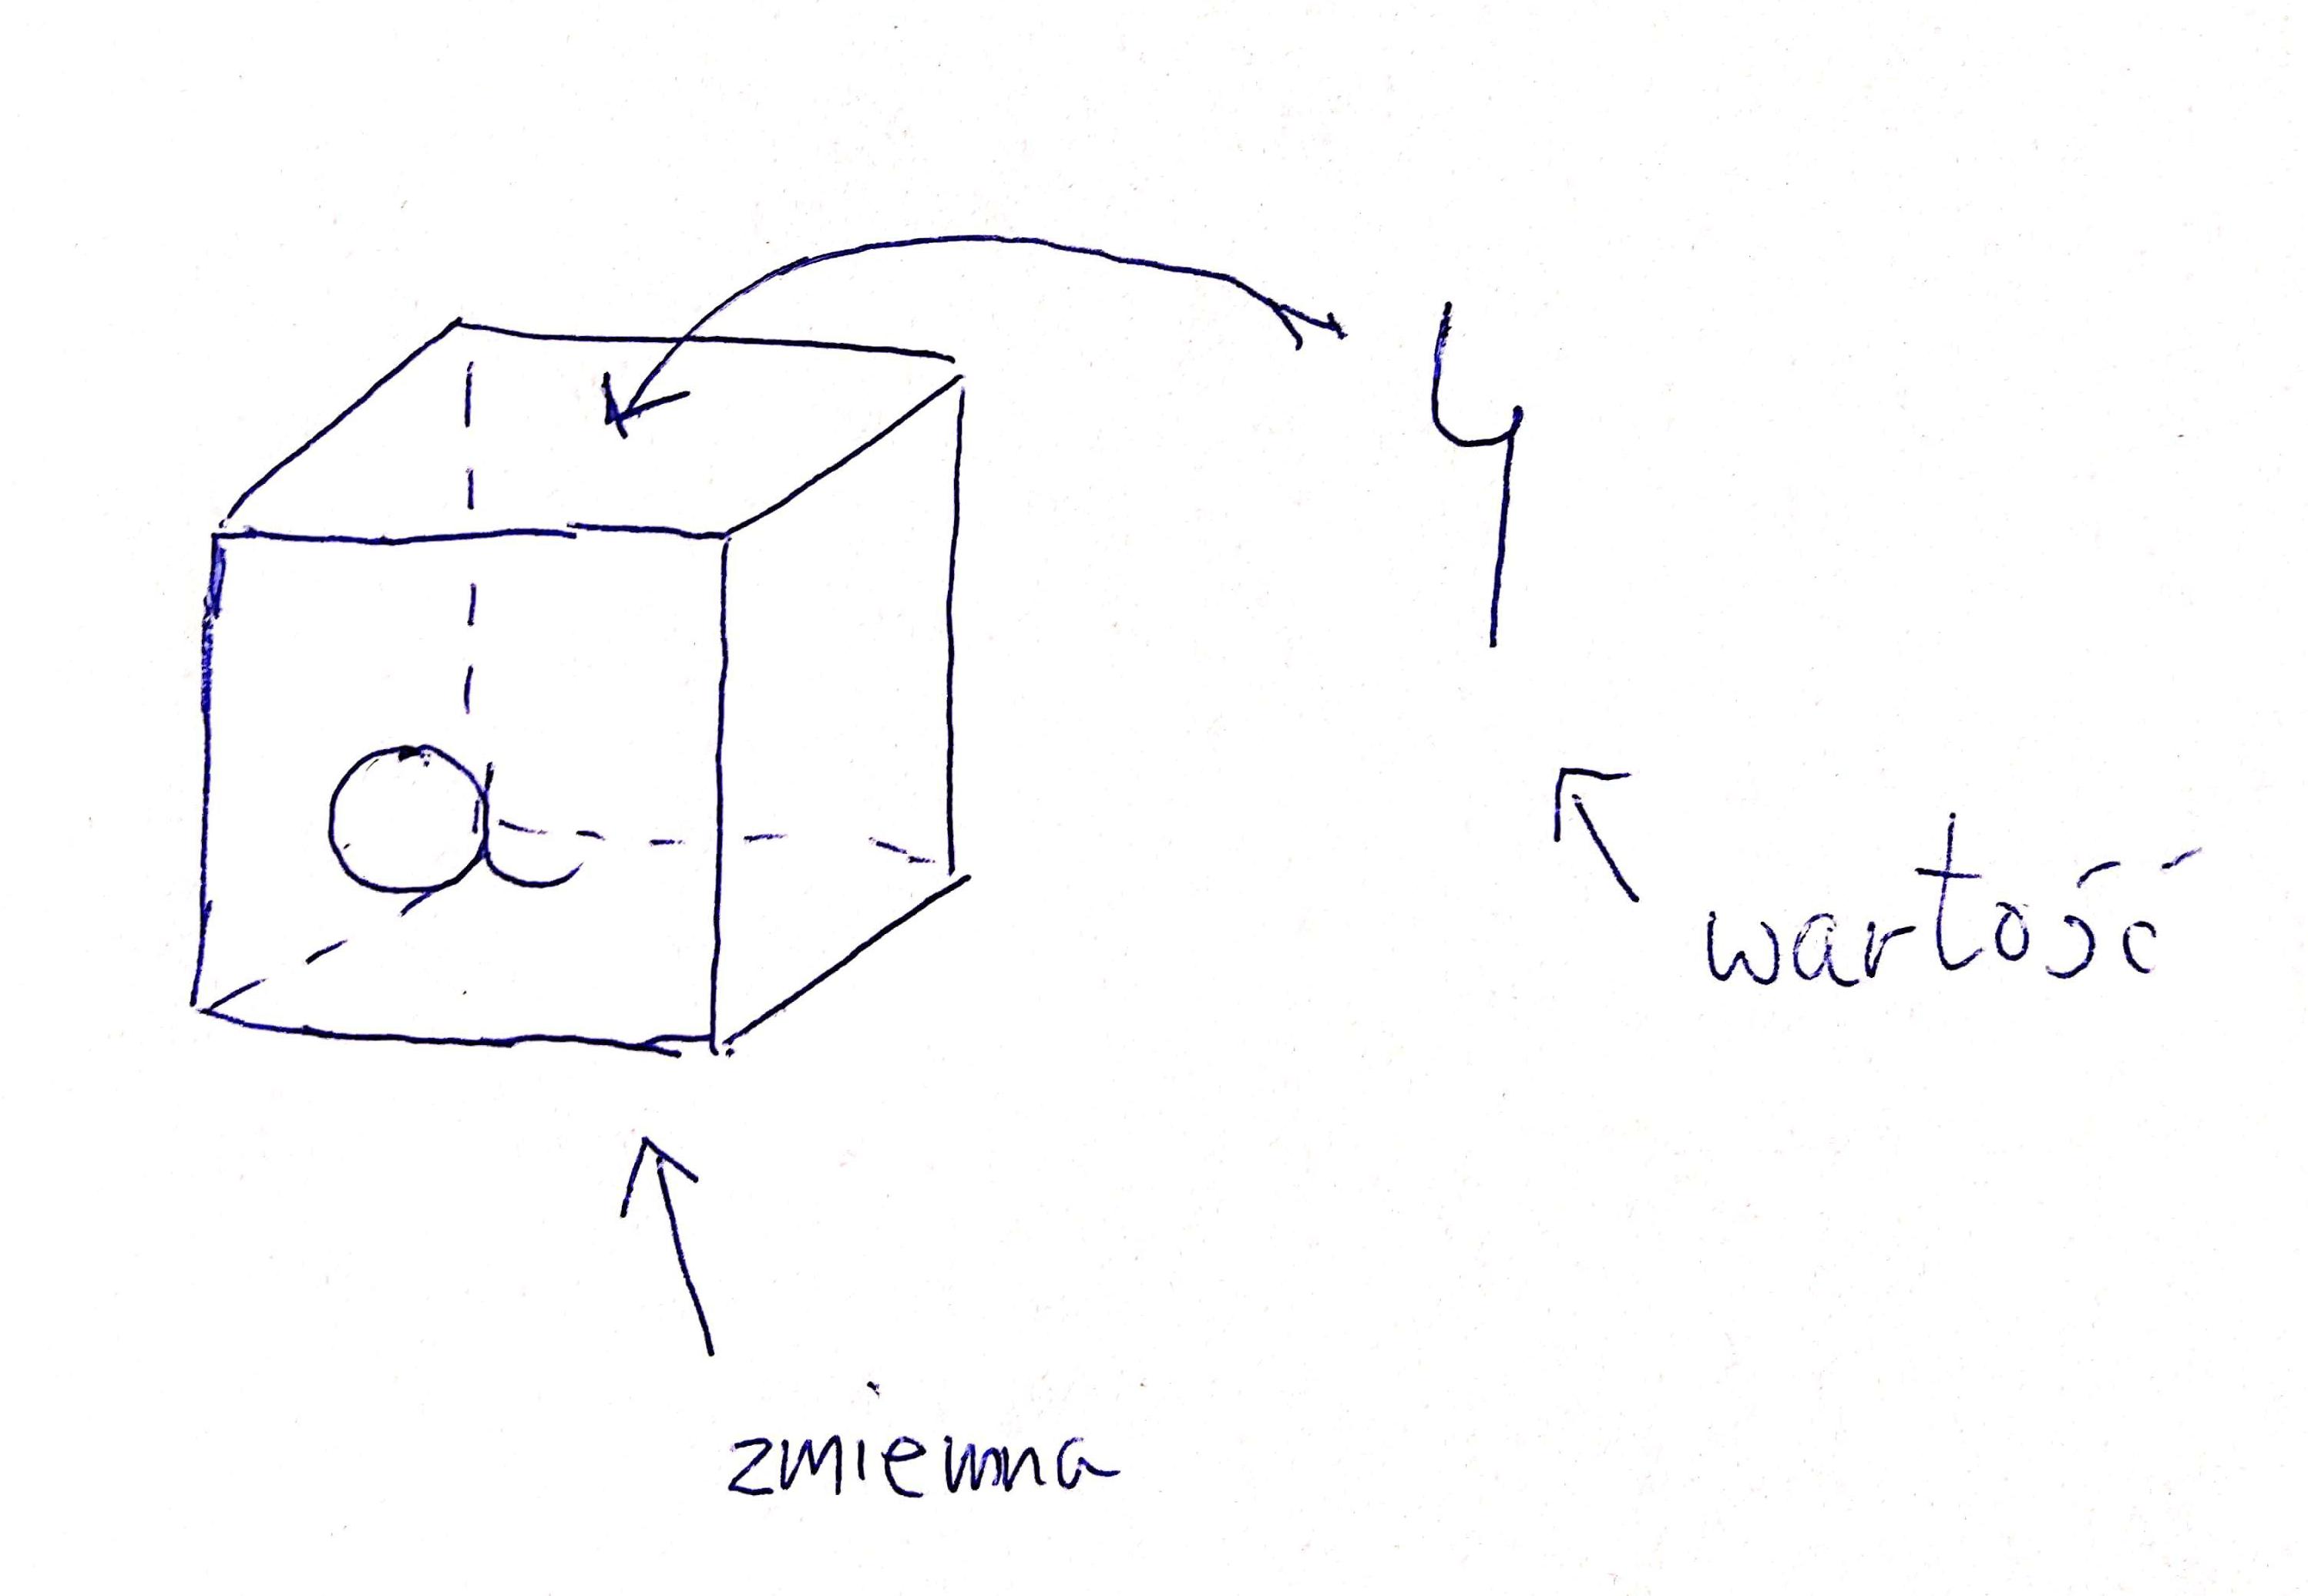 4
a
wartość
zmienna